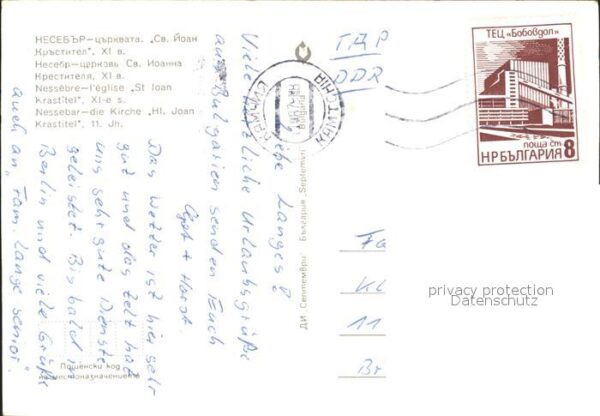 НЕСЕБЪР—църквата. „Св. Йоан
Кръстител", XI в.
Несебр—церковь Св. Иоанна
Крестителя, XI в.
Nessèbre—l'église "St Ioan
Krastitel", XI-e s.
Nessebar—die Kirche "Hl. Joan
Krastitel", 11. Jh.
Liebe Langes!
Viele herzliche Urlaubsgrüße
aus Bulgarien senden Euch
+ Horst.
Das Wetter ist hier sehr
gut und das Zelt hat
uns sehr gute Dienste
geleistet. Bis bald in
Berlin und viele Grüße
auch an „Fam. Lange senior."
Пощенски код
местоназначението
ДИ „Септември" България „Septemvri" Bulgaria
КАМЧИЯ
ГДР
DDR
Fa
Kl
11
Br
ТЕЦ „Бобовдол"
поща ст
НРБЪЛГАРИЯ 8
privacy protection
Datenschutz